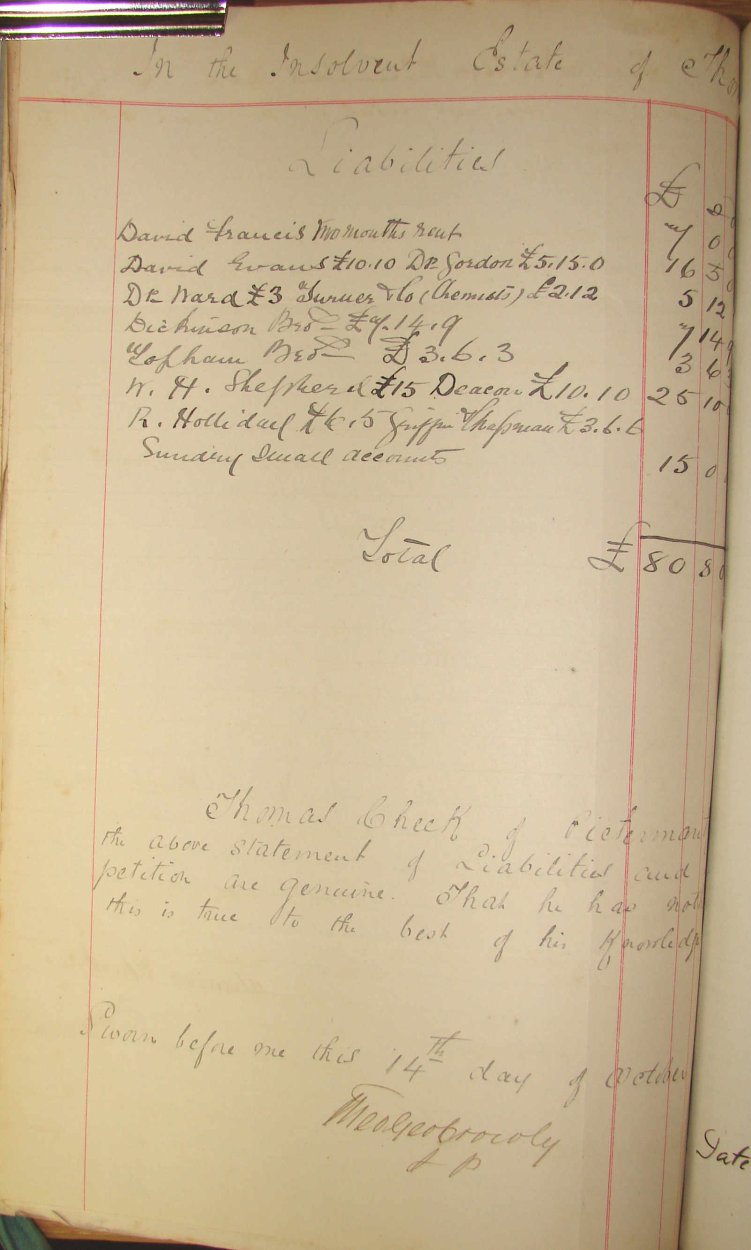 In the Insolvent Estate of Tho
Liabilities
£ s
David Francis Two months rent 7 0 0
David Evans £10.10 Dr Gordon £5.15.0 16 5 0
Dr Ward £3 Turner & Co (Chemists) £2.12 5 12
Dickinson Bros £7.14.9 7 14 9
Topham Bros £3.6.3 3 6 3
W. H. Shepherd £15 Deacon £10.10 25 10
R. Holliday £6.5 Griffin & Chapman £3.6.6
Sundry Small accounts 15 0
Total £ 80 8
Thomas Check of
the above statement of Liabilities and
petition are genuine. That he has not
this is true to the best of his Knowledge
Sworn before me this 14th day of October
J P
Date